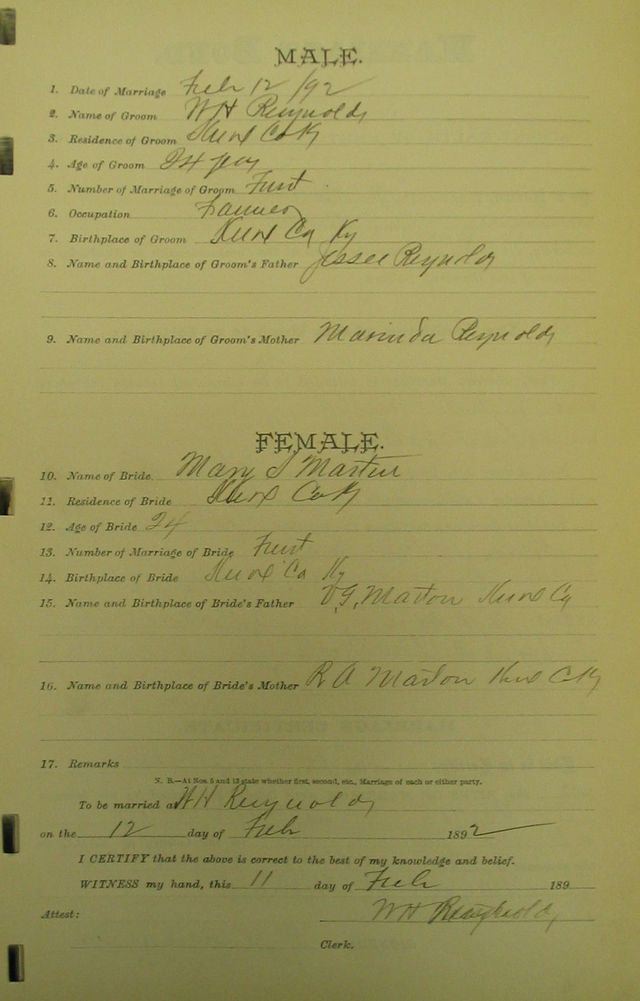 MALE.
1. Date of Marriage Feb 12 /92
2. Name of Groom WH Reynolds
3. Residence of Groom Knox Co Ky
4. Age of Groom 24 yrs
5. Number of Marriage of Groom First
6. Occupation Farmer
7. Birthplace of Groom Knox Co Ky
8. Name and Birthplace of Groom's Father Jesse Reynolds
9. Name and Birthplace of Groom's Mother Marinda Reynolds
FEMALE.
10. Name of Bride. Mary S Martin
11. Residence of Bride Knox Co Ky
12. Age of Bride 24
13. Number of Marriage of Bride First
14. Birthplace of Bride Knox Co Ky
15. Name and Birthplace of Bride's Father Marton Knox Co
16. Name and Birthplace of Bride's Mother R A Marton Knox Co Ky
17. Remarks
N. B.—At Nos. 5 and 13 state whether first, second, etc., Marriage of each or either party.
To be married at WH Reynolds
on the 12 day of Feb 1892
I CERTIFY that the above is correct to the best of my knowledge and belief.
WITNESS my hand, this 11 day of Feb 189
Attest: WH Reynolds
Clerk.